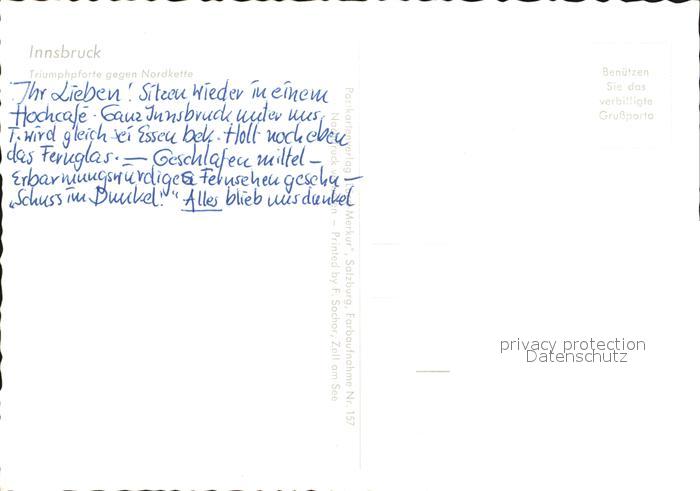 Innsbruck
Triumphpforte gegen Nordkette
Ihr Lieben! Sitzen wieder in einem
Hochcafé. Ganz Innsbruck unter uns,
T. wird gleich sei Essen bek. Holt noch eben
das Fernglas. — Geschlafen mittel –
Erbarmungswürdiges Fernsehen geschn –
„Schuss im Dunkel!" Alles blieb uns dunkel
Benützen
Sie das
verbilligte
Grußporto
Postkartenverlag "Merkur", Salzburg, Farbaufnahme Nr. 157
– Printed by F. Sochor, Zell am See
privacy protection
Datenschutz